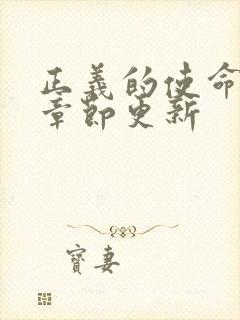 正義的使命
章節更新
寶妻